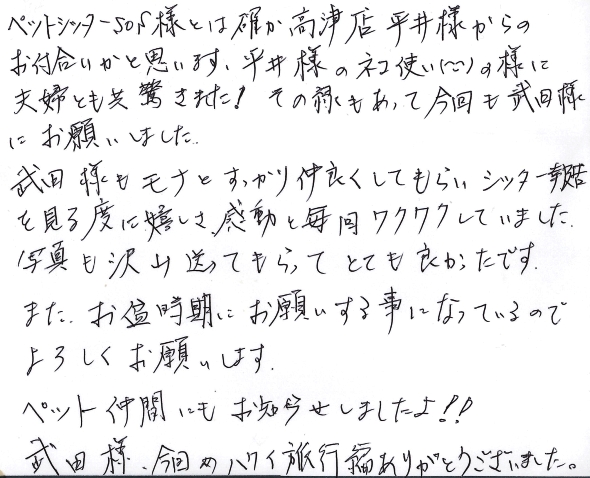 ペットシッターSOS様とは確か高津店平井様からの
お付合いかと思います、平井様のネコ使い(〜)の様に
夫婦とも共驚きました! その縁もあって今回も武田様
にお願いしました。
武田様もモナとすっかり仲良くしてもらい シッター報告
を見る度に嬉しさ、感動と毎回ワクワクしていました。
写真も沢山送ってもらってとても良かったです。
また、お盆時期にお願いする事になっているので
よろしくお願いします。
ペット仲間にもお知らせしましたよ!!
武田様、今回のハワイ旅行編ありがとうございました。